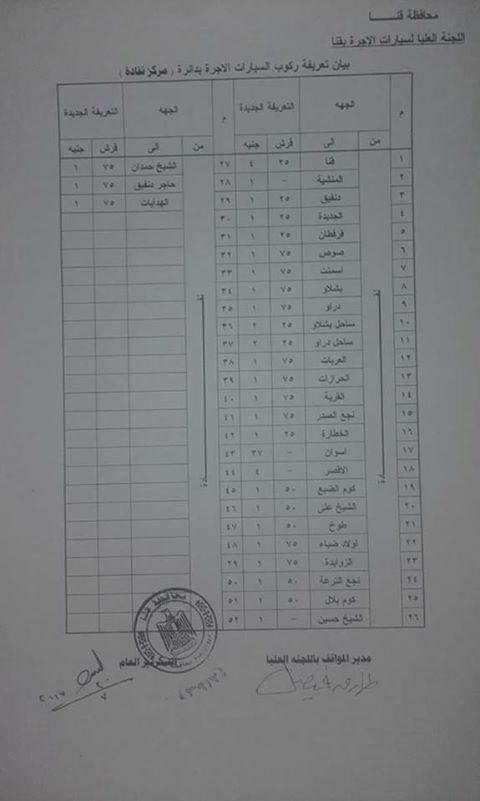 محافظة قنـــــا
اللجنة العليا لسيارات الاجرة بقنا
بيان تعريفة ركوب السيارات الاجرة بدائرة ( مركز نقادة )
م الجهه التعريفة الجديدة م الجهه التعريفة الجديدة
من الى قرش جنيه من الى قرش جنيه
١ قنا ٢٥ ٤ ٢٧ الشيخ حمدان ٧٥ ١
٢ المنشية - ١ ٢٨ حاجر دنفيق ٧٥ ١
٣ دنفيق ٢٥ ١ ٢٩ الهدايات ٧٥ ١
٤ الجديدة ٢٥ ١ ٣٠
٥ قرقطان ٢٥ ١ ٣١
٦ صوص ٧٥ ١ ٣٢
٧ اسمنت ٧٥ ١ ٣٣
٨ بشلاو ٧٥ ١ ٣٤
٩ دراو ٧٥ ١ ٣٥
١٠ ساحل بشلاو ٢٥ ٢ ٣٦
١١ ساحل دراو ٢٥ ٢ ٣٧
١٢ العربات ٧٥ ١ ٣٨
١٣ الحرازات ٧٥ ١ ٣٩
١٤ القرية ٧٥ ١ ٤٠
١٥ نجع الصدر ٧٥ ١ ٤١
١٦ الخطارة ٢٥ ١ ٤٢
١٧ اسوان - ٣٧ ٤٣
١٨ الاقصر - ٤ ٤٤
١٩ كوم الضبع ٥٠ ١ ٤٥
٢٠ الشيخ على ٥٠ ١ ٤٦
٢١ طوخ ٥٠ ١ ٤٧
٢٢ اولاد ضياء ٧٥ ١ ٤٨
٢٣ الزوايدة ٧٥ ١ ٢٩
٢٤ نجع الترعة ٥٠ ١ ٥٠
٢٥ كوم بلال ٥٠ ١ ٥١
٢٦ الشيخ حسين - ١ ٥٢
مدير المواقف باللجنه العليا السكرتير العام
محافظة قنا